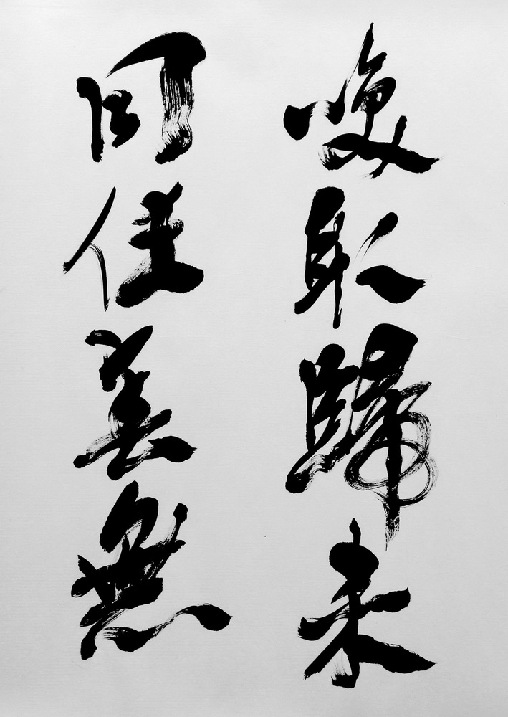 喚取歸來
同住春無